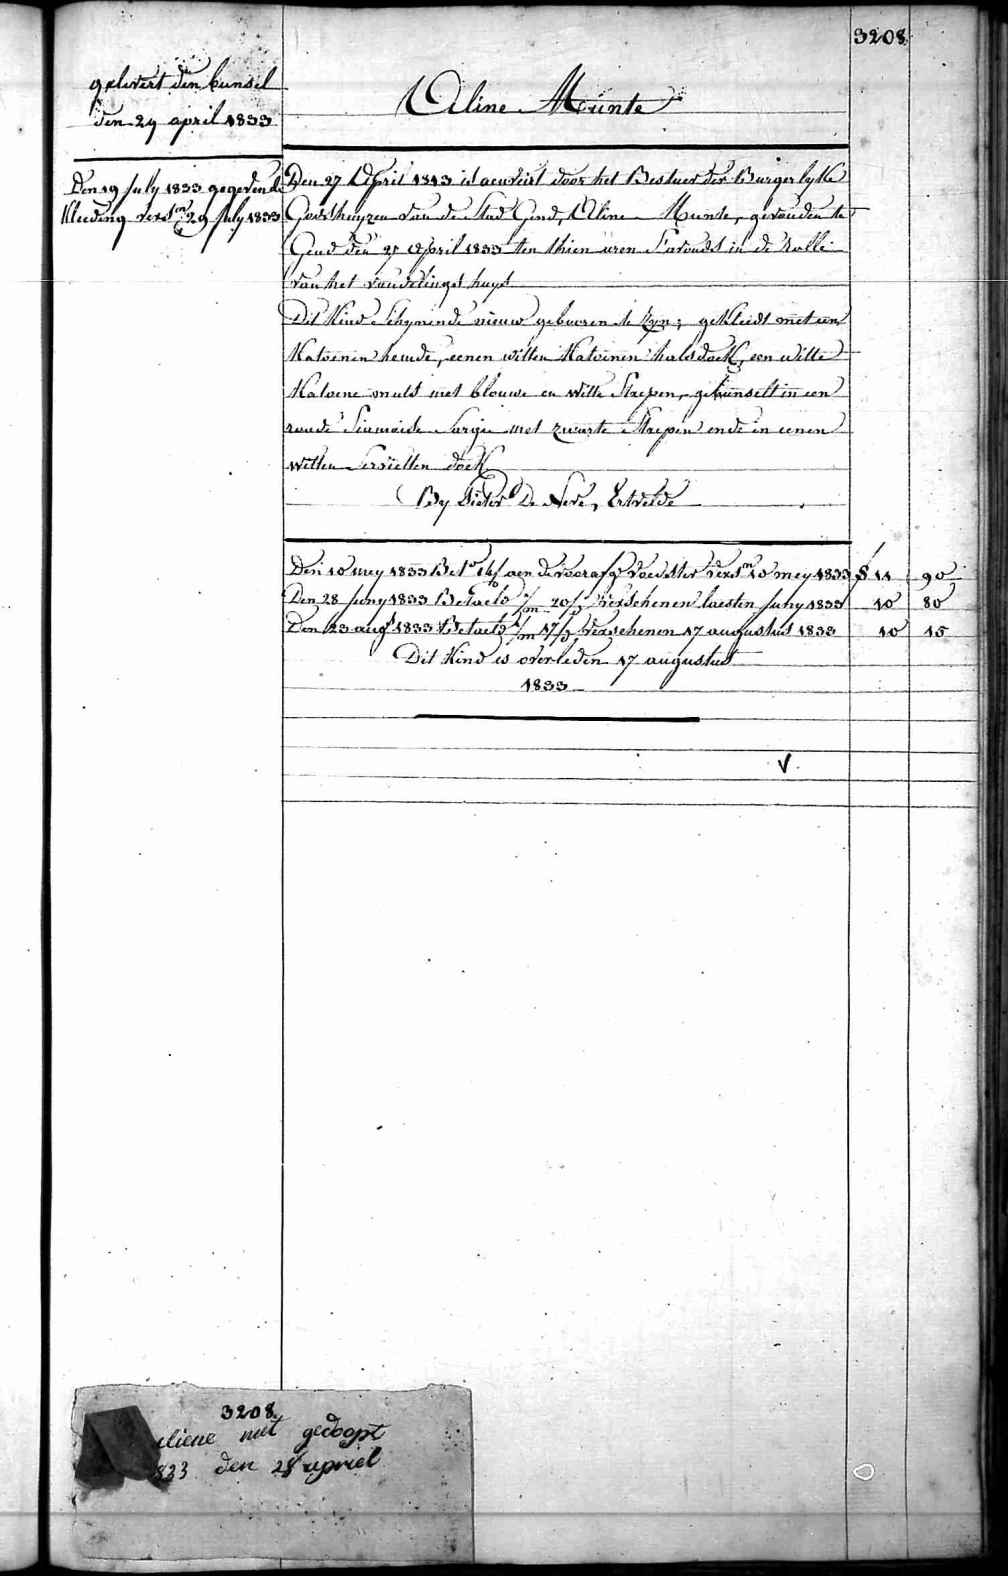 3208
gelevert den bunsel
den 29 april 1833
Aline Munte
Den 19 July 1833 gegeven de
kleeding versn 29 July 1833
Den 27 April 1843 is aenveirt door het Bestuer der Burgerlyke
Godshuyzen van de Stad Gend, Aline Munte, gevonden te
Gend den 27 April 1833 ten thien uren S'avonds in de rolle
van het vondelings huys
Dit Kind Schynende nieuw gebooren te Zyn; gekleedt met een
Katoenen hemde, eenen witten Katoenen halsdoek, een witte
Katoene muts met blouwe en witte Strepen, gebunselt in een
roude Siamoise Sargie met zwarte Strepen ende in eenen
witten Servietten doek
By Pieter De Neve, Ertvelde
Den 10 mey 1833 Bet 14/ aen de voorafg voedster versn 10 mey 1833 11 90
Den 28 Juny 1833 Betaelt 20/ verschenen laesten Juny 1833 10 80
Den 23 augt 1833 Betaelt 17/ verschenen 17 augustus 1833 10 15
Dit Kind is overleden 17 augustus
1833
V
3208
aliene niet gedoopt
1833 den 28 apriel